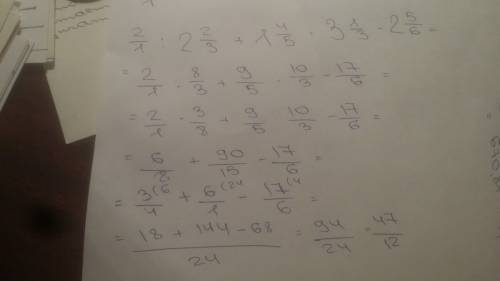 2/1 : 2 2/3 + 1 4/5 · 3 1/3 - 2 5/6 =
= 2/1 · 8/3 + 9/5 · 10/3 - 17/6 =
= 2/1 · 3/8 + 9/5 10/3 - 17/6 =
= 6/8 + 90/15 - 17/6 =
= 3(6/4 + 6(24/1 - 17(4/6 =
= 18 + 144 - 68/24 = 94/24 = 47/12